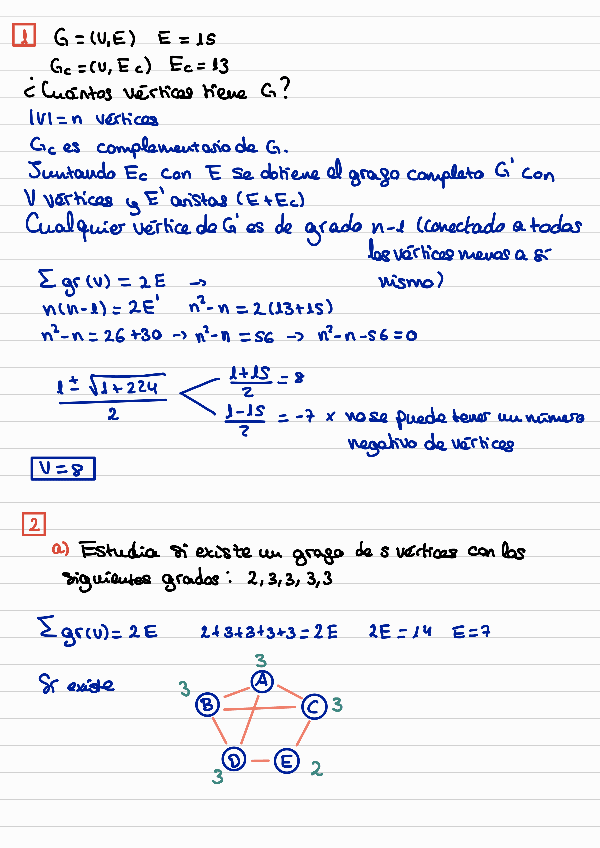 1 G = (V, E) E = 15
Gc = (V, Ec) Ec = 13
¿Cuántos vértices tiene G?
|V| = n vértices
Gc es complementario de G.
Juntando Ec con E se obtiene el grago completo G' con
V vértices y E' aristas (E+Ec)
Cualquier vértice de G' es de grado n-1 (conectado a todos
los vértices menos a sí
mismo)
Σ gr(v) = 2E →
n(n-1) = 2E' n²-n = 2(13+15)
n²-n = 26+30 → n²-n = 56 → n²-n-56=0
1 ± √1+224 / 2
1+15 / 2 = 8
1-15 / 2 = -7 x no se puede tener un número
negativo de vértices
V = 8
2
a) Estudia si existe un grago de 5 vértices con los
siguientes grados: 2,3,3,3,3
Σ gr(v) = 2E 2+3+3+3+3 = 2E 2E = 14 E = 7
Sí existe
3
A
3
B
C
3
D
E
3
2